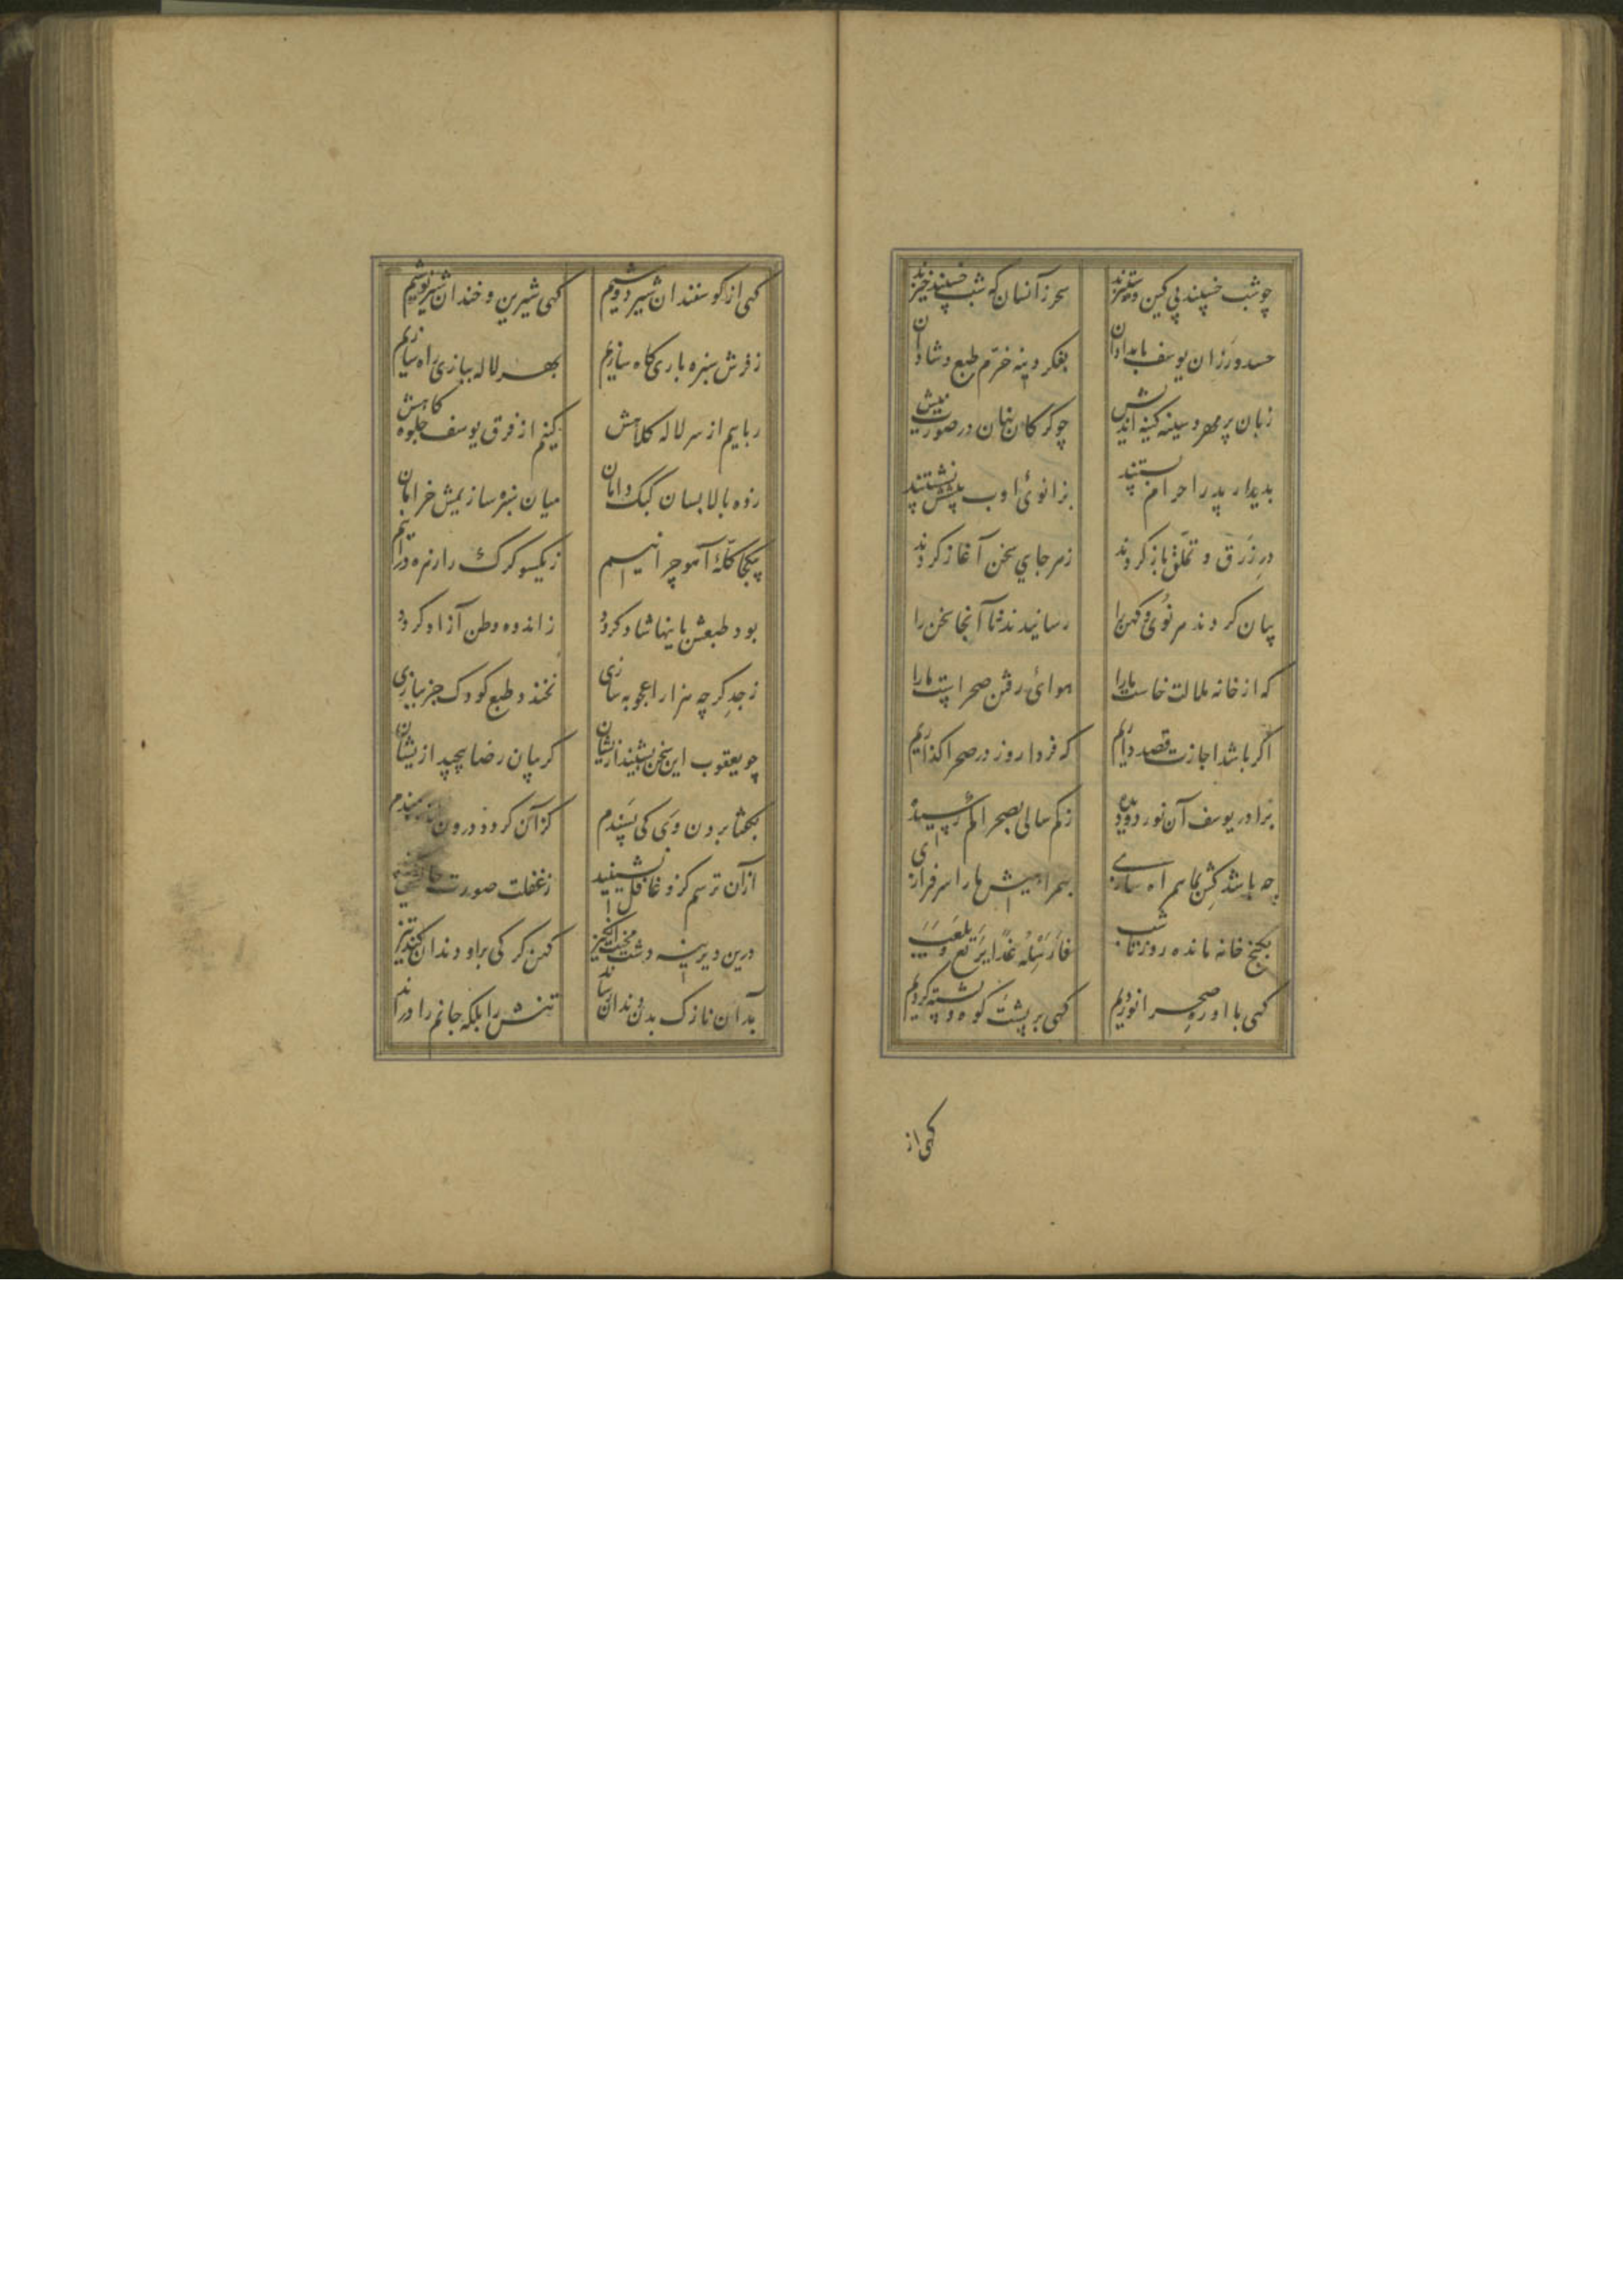 چو شب خسپند بی کین و ستیزند سحر زانسان که شب خسپند خیزند
حسدورزان یوسف بامدادان بفکر دینه خرم طبع و شادان
زبان پر مهر و سینه کینه اندیش چو گرگان نهان در صورت میش
بدیدار پدر احرام بستند بزانوئ ادب پیشش نشستند
در زرق و تملق باز کردند ز هر جای سخن آغاز کردند
بیان کردند هر نوی و کهن را رسانیدند تا آنجا سخن را
که از خانه ملالت خاست ما را هوائ رفتن صحراست ما را
اگر باشد اجازت قصد داریم که فردا روز در صحرا گذاریم
برادر یوسف آن نور دو دیده ز کم سالی بصحرا کم رسیده
چه باشد کش بما همراه سازی بهمراهیش ما را سرفرازی
بکنج خانه مانده روز تا شب فارسله غدا یرتع و یلعب
گهی با او ره صحرا نوردیم گهی بر پشت کوه و پشته گردیم
گهی از
گهی از گوسفندان شیر دوشیم گهی شیرین و خندان شیر نوشیم
ز فرش سبزه بازی گاه سازیم بهر لاله ببازی راه سازیم
رباییم از سر لاله کلاهش کنیم از فرق یوسف جلوه گاهش
زده بالا بسان کبک دامان میان سبزه سازیمش خرامان
بیکجا گلهٔ آهو چرانیم ز یکسو گرگ را زهره درانیم
بود طبعش باینها شاد گردد ز اندوه وطن آزاد گردد
ز جد گر چه هزار اعجوبه سازی نخندد طبع کودک جز ببازی
چو یعقوب این سخن بشنید ازیشان گریبان رضا پیچید ازیشان
بگفتا بردن وی کی پسندم کزان گردد درون
ازان ترسم کزو غافل نشینید ز غفلت صورت
درین دیرینه دشت محنت انگیز کهن گرگی برو دندان کند تیز
بدان نازک بدن دندان رساند تنش را بلکه جانم را دراند